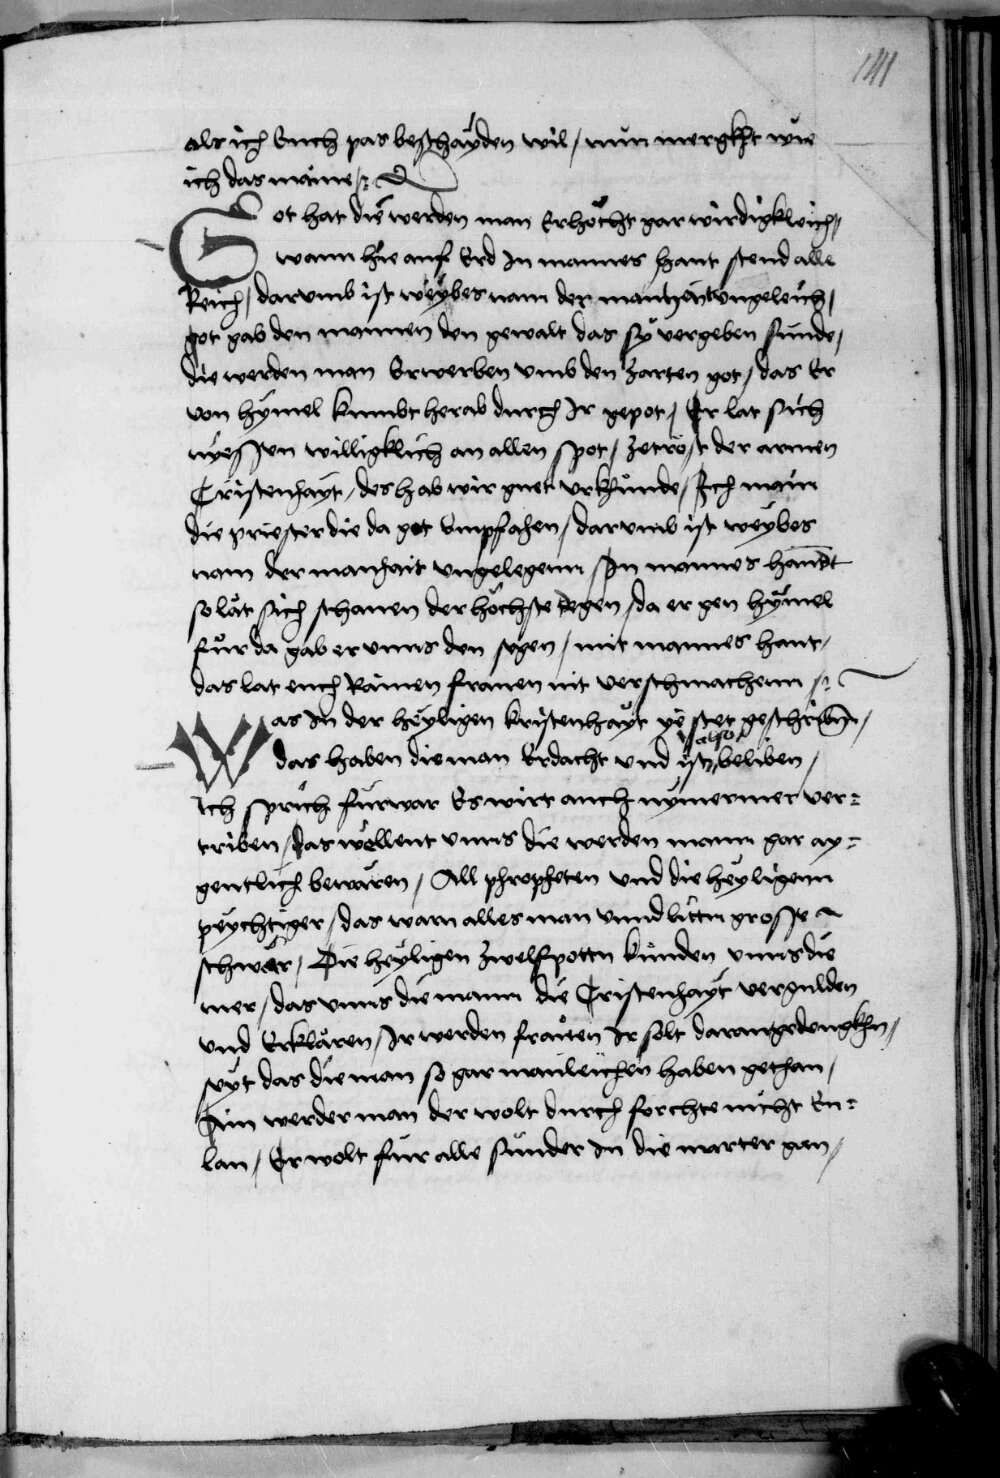 141
als ich Euch pas beschayden wil / nun mergkht wie
ich das maine /
Got hat die werden man Erhöcht gar wirdigkleich /
wann hie auf Erd In mannes hant stend alle
Reich / darumb ist weybes nam der manhait ungeleich /
got gab den mannen den gewalt das sy vergeben sunde /
die werden man Erwerben umb den zarten got / das Er
von hymel kumbt herab durch Ir gepot / Er lat sich
nyessen willigklich an allen spot / ze trost der armen
Cristenhayt / des hab wir guet urkhunde / Ich main
die priester die da got Empfahen / darumb ist weybes
nam der manhait ungelegenn In mannes handt
so lät sich schauen der höchste degen / da er gen hymel
fuor da gab er unns den segen / mit mannes hant /
das lat euch Rainen frauen nit verschmachenn /
Was In der heyligen kristenhayt ye stet geschribnn /
das haben die man Erdacht und ist also beliben /
Ich sprich furwar Es wirt auch nymermer ver=
triben / das wellent unns die werden mann gar ay=
gentlich bewären / All phropheten und die heyligenn
peychtiger / das warn alles man unnd littn grosse
schwär / Die heyligen zwelfpottn künden unns die
mer / das unns die mann die Cristenhayt vergulden
und Erklären / Ir werden frauen Ir solt daran gedengkhn /
seyt das die man so gar manleichen haben gethan /
Ain werder man der wolt durch forchte nicht En=
lan / Er wolt für alle sünder In die marter gan /